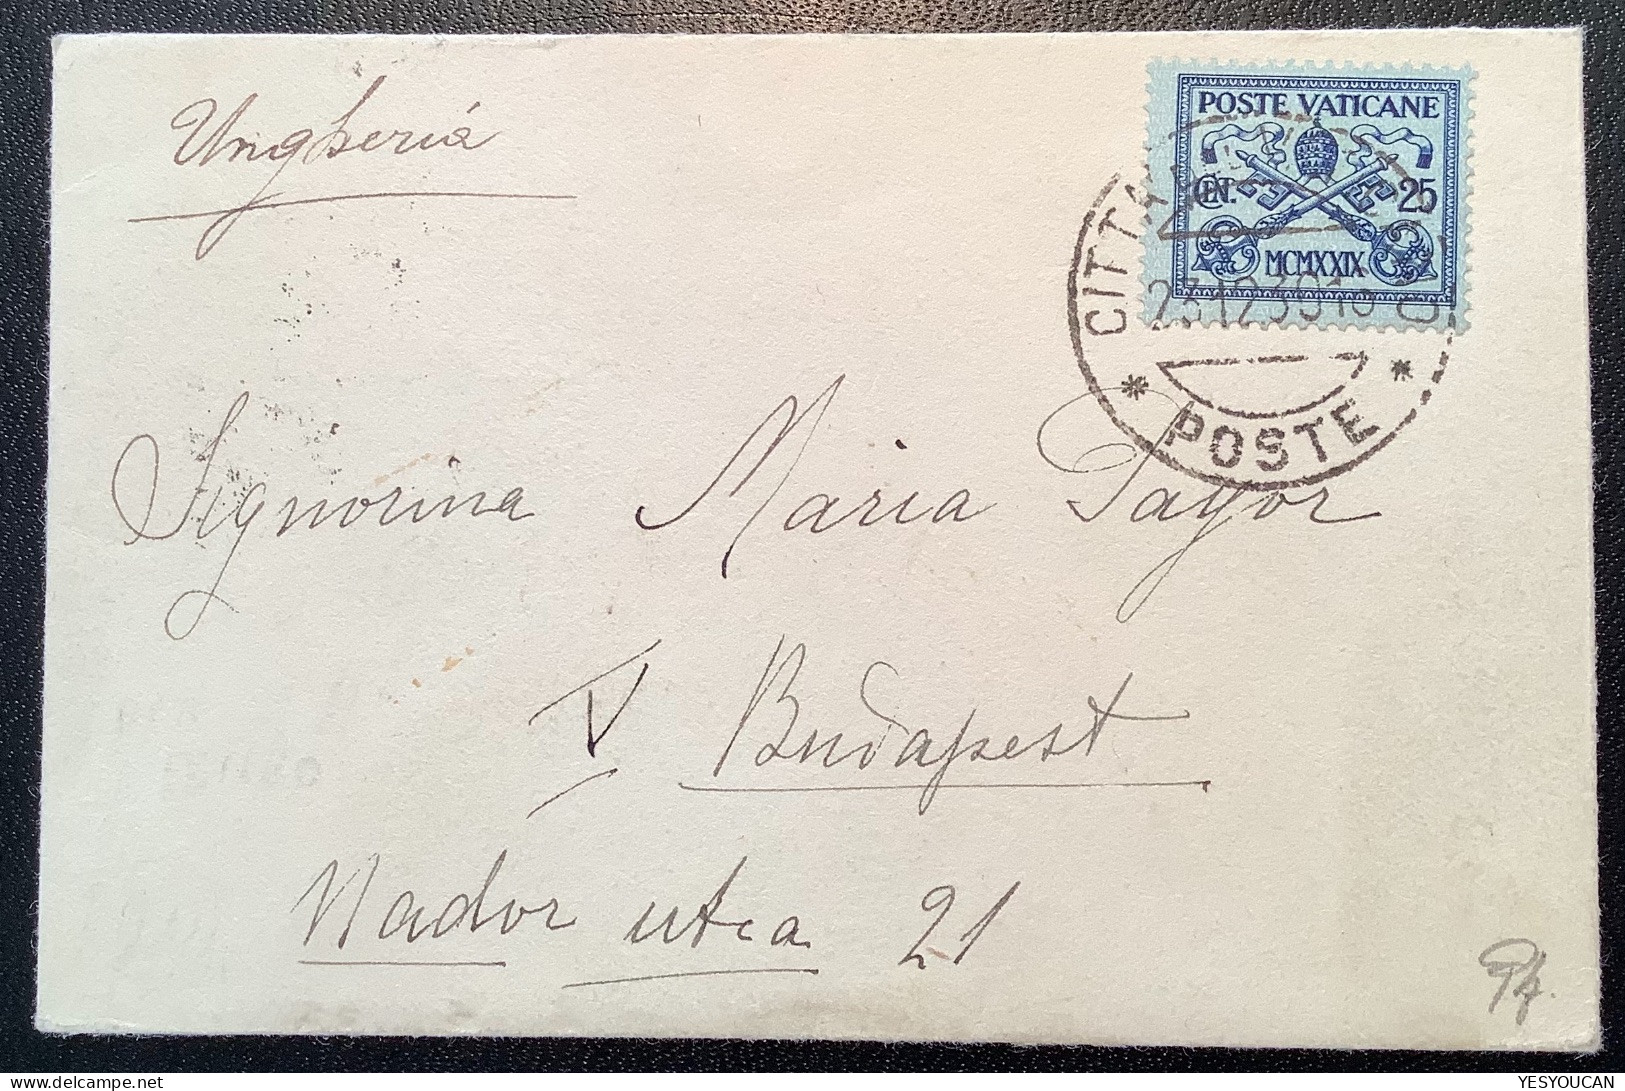 Ungheria
POSTE VATICANE
CENT. 25
MCMXXIX
CITTÀ
23.12.39 16
* POSTE *
Signorina Maria Payor
V Budapest
Nador utca 21
YESYOUCAN